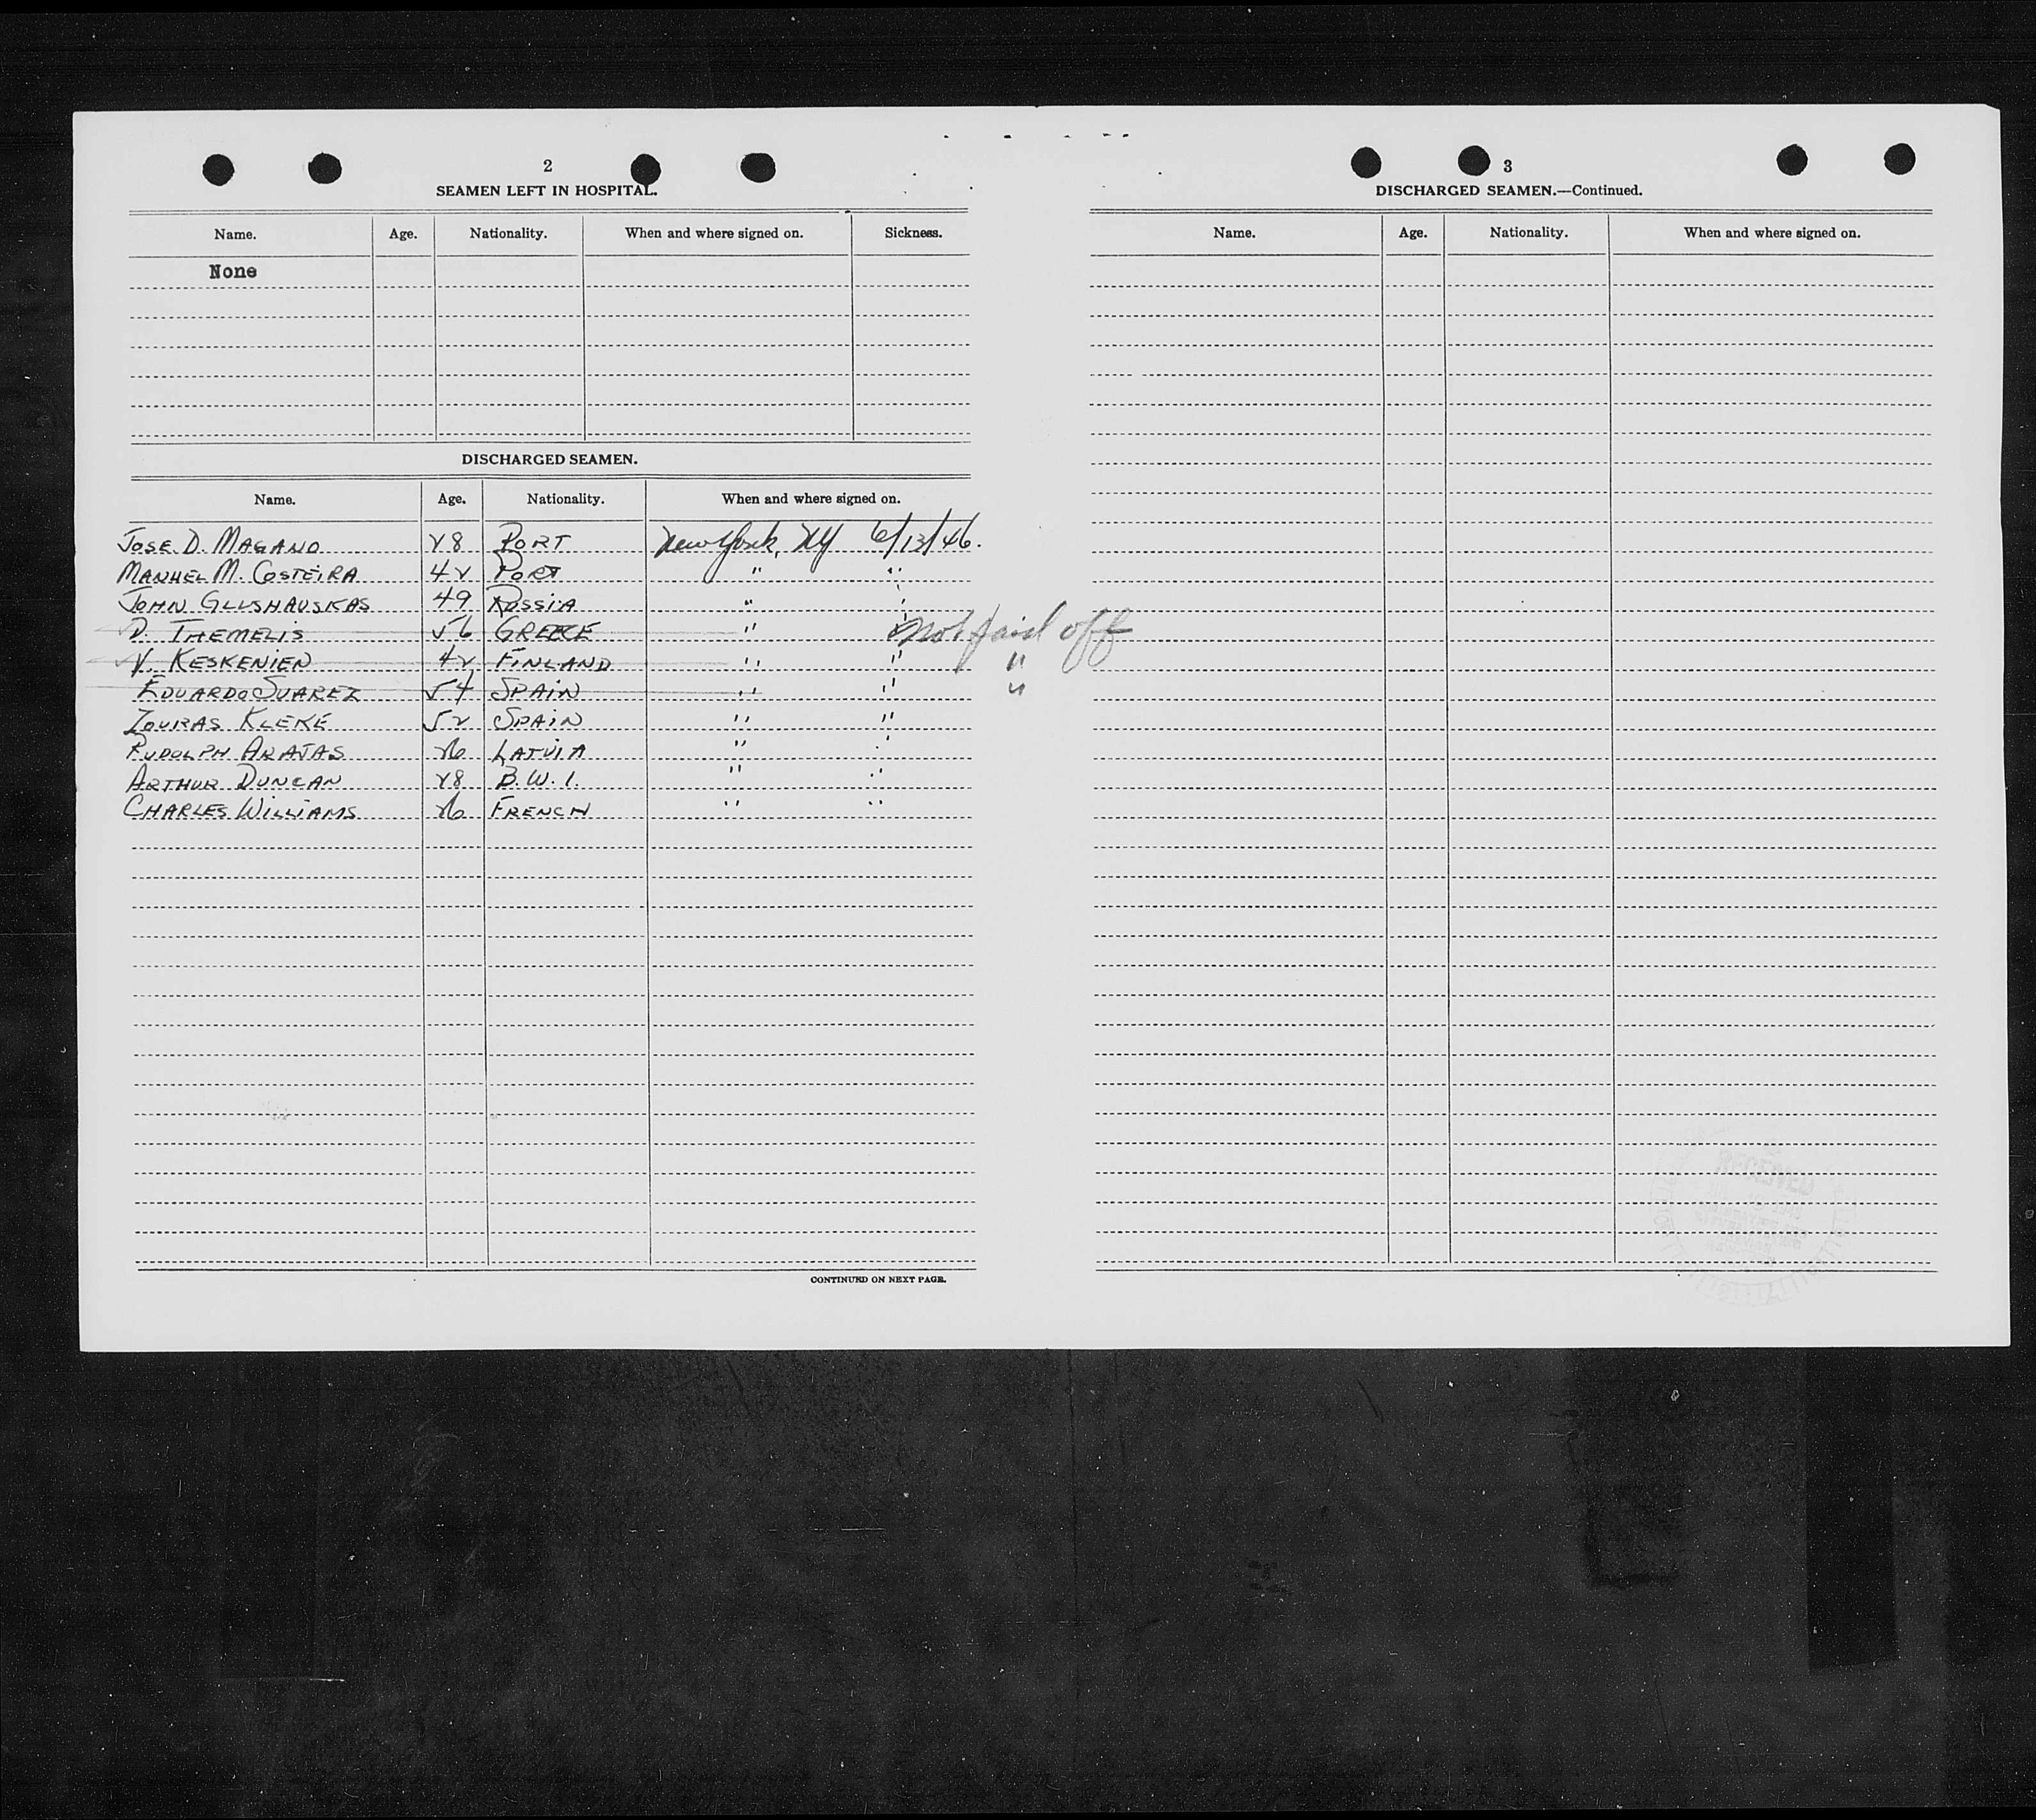 2
SEAMEN LEFT IN HOSPITAL.
Name. Age. Nationality. When and where signed on. Sickness.
None
DISCHARGED SEAMEN.
Name. Age. Nationality. When and where signed on.
JOSE D. MAGANO 28 PORT New York, NY 6/13/46.
MANUEL M. COSTEIRA 42 PORT " "
JOHN GLUSHAUSKAS 49 RUSSIA " "
D. THEMELIS 56 GREECE " " not paid off
V. KESKENIEN 42 FINLAND " " "
EDUARDO SUAREZ 54 SPAIN " " "
ZOURAS KLEKE 52 SPAIN " "
RUDOLPH ARAJAS 26 LATVIA " "
ARTHUR DUNCAN 28 B.W.I. " "
CHARLES WILLIAMS 26 FRENCH " "
CONTINUED ON NEXT PAGE.
3
DISCHARGED SEAMEN.—Continued.
Name. Age. Nationality. When and where signed on.
RECEIVED